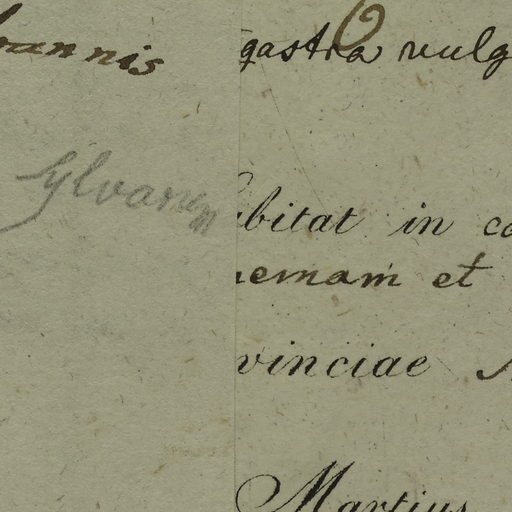 annis
gastra vulg
Sylvanum
bitat in co
ernam et
vinciae
Martius